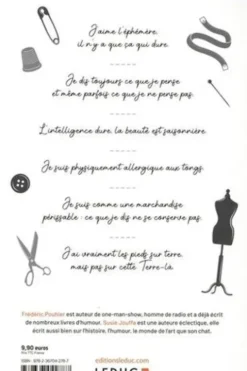 J'aime l'éphémère,
il n'y a que ça qui dure.
Je dis toujours ce que je pense
et même parfois ce que je ne pense pas.
L'intelligence dure, la beauté est saisonnière.
Je suis physiquement allergique aux tongs.
Je suis comme une marchandise
périssable : ce que je dis ne se conserve pas.
J'ai vraiment les pieds sur terre,
mais pas sur cette Terre-là.
Frédéric Pouhier est auteur de one-man-show, homme de radio et a déjà écrit
de nombreux livres d'humour. Susie Jouffa est une auteure éclectique, elle
écrit aussi bien sur l'histoire, l'humour, le monde de l'art que sur le chat.
9,90 euros
editionsleduc.com
LEDUC